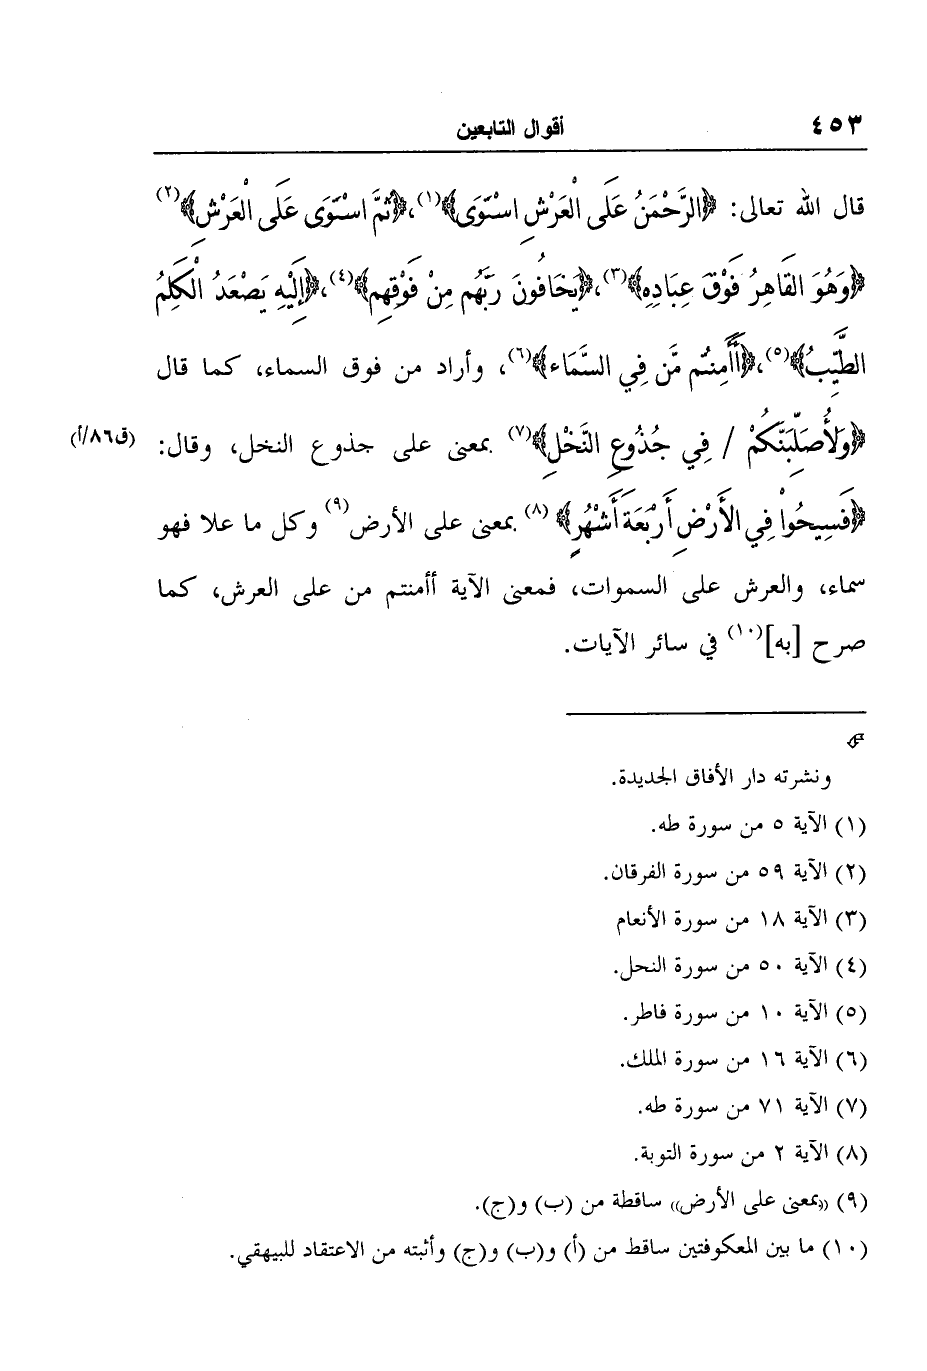 ٤٥٣ أقوال التابعين
قال الله تعالى: ﴿الرَّحْمَنُ عَلَى الْعَرْشِ اسْتَوَى﴾(١)، ﴿ثُمَّ اسْتَوَى عَلَى الْعَرْشِ﴾(٢)
﴿وَهُوَ القَاهِرُ فَوْقَ عِبَادِهِ﴾(٣)، ﴿يَخَافُونَ رَبَّهُم مِنْ فَوْقِهِم﴾(٤)، ﴿إِلَيْهِ يَصْعَدُ الْكَلِمُ
الطَّيِّبُ﴾(٥)، ﴿أَأَمِنتُم مَّن فِي السَّمَاء﴾(٦)، وأراد من فوق السماء، كما قال
﴿وَلأُصَلِّبَنَّكُمْ / فِي جُذُوعِ النَّخْلِ﴾(٧) بمعنى على جذوع النخل، وقال: (ق٨٦/أ)
﴿فَسِيحُواْ فِي الأَرْضِ أَرْبَعَةَ أَشْهُرٍ﴾ (٨) بمعنى على الأرض(٩) وكل ما علا فهو
سماء، والعرش على السموات، فمعنى الآية أأمنتم من على العرش، كما
صرح [به](١٠) في سائر الآيات.
ونشرته دار الأفاق الجديدة.
(١) الآية ٥ من سورة طه.
(٢) الآية ٥٩ من سورة الفرقان.
(٣) الآية ١٨ من سورة الأنعام
(٤) الآية ٥٠ من سورة النحل.
(٥) الآية ١٠ من سورة فاطر.
(٦) الآية ١٦ من سورة الملك.
(٧) الآية ٧١ من سورة طه.
(٨) الآية ٢ من سورة التوبة.
(٩) «بمعنى على الأرض» ساقطة من (ب) و(ج).
(١٠) ما بين المعكوفتين ساقط من (أ) و(ب) و(ج) وأثبته من الاعتقاد للبيهقي.